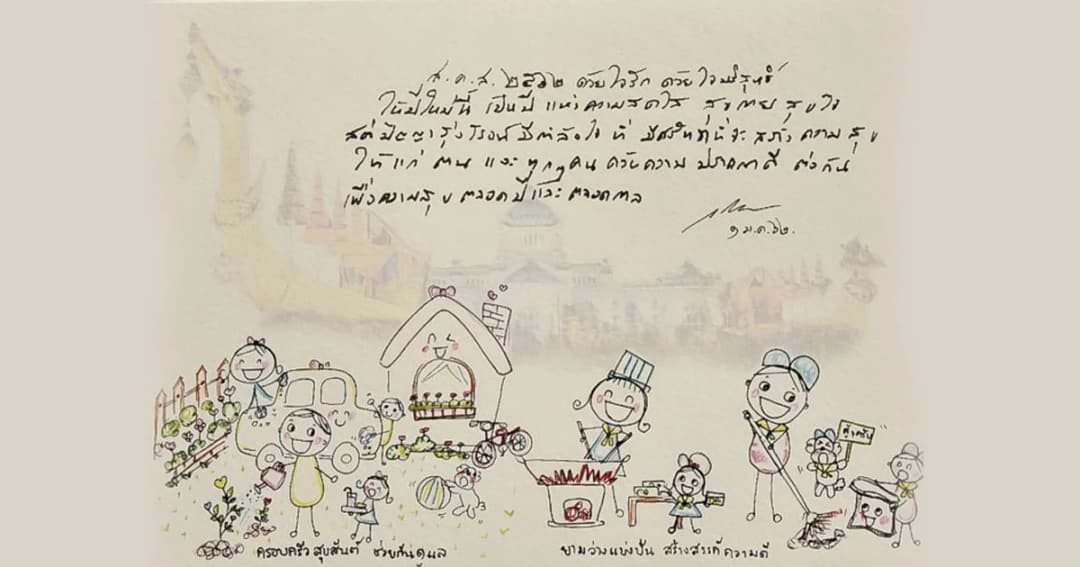 ส.ค.ส. ๒๕๖๒ ด้วยใจรัก ด้วยใจบริสุทธิ์
ให้ปีใหม่นี้ เป็นปี แห่งความสดใส สุขกาย สุขใจ
สติปัญญารุ่งโรจน์ มีกำลังใจ ที่ จะ สร้าง ความ สุข
ให้ แก่ ตน และ ทุกๆคน ด้วยความ ปรารถนาดี ต่อกัน
เพื่อความสุข ตลอดปีและ ตลอดกาล
๑ ม.ค. ๖๒.
ครอบครัว สุขสันต์ ช่วยกันดูแล
ยามว่างแบ่งปัน สร้างสรรค์ ความดี